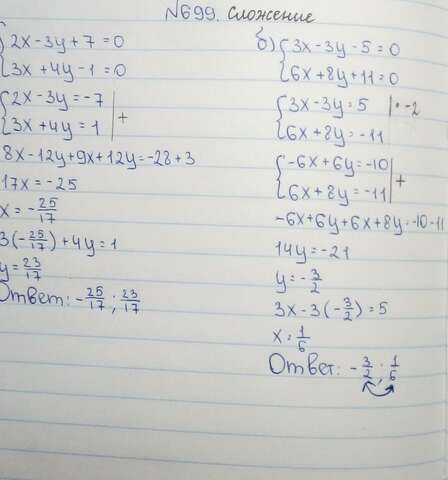 №699. Сложение
{2x-3y+7=0
{3x+4y-1=0
{2x-3y=-7
{3x+4y=1 | +
8x-12y+9x+12y=-28+3
17x=-25
x=-25/17
3(-25/17)+4y=1
y=23/17
Ответ: -25/17; 23/17
б) {3x-3y-5=0
{6x+8y+11=0
{3x-3y=5 | • -2
{6x+8y=-11
{-6x+6y=-10
{6x+8y=-11 | +
-6x+6y+6x+8y=-10-11
14y=-21
y=-3/2
3x-3(-3/2)=5
x=1/6
Ответ: -3/2; 1/6